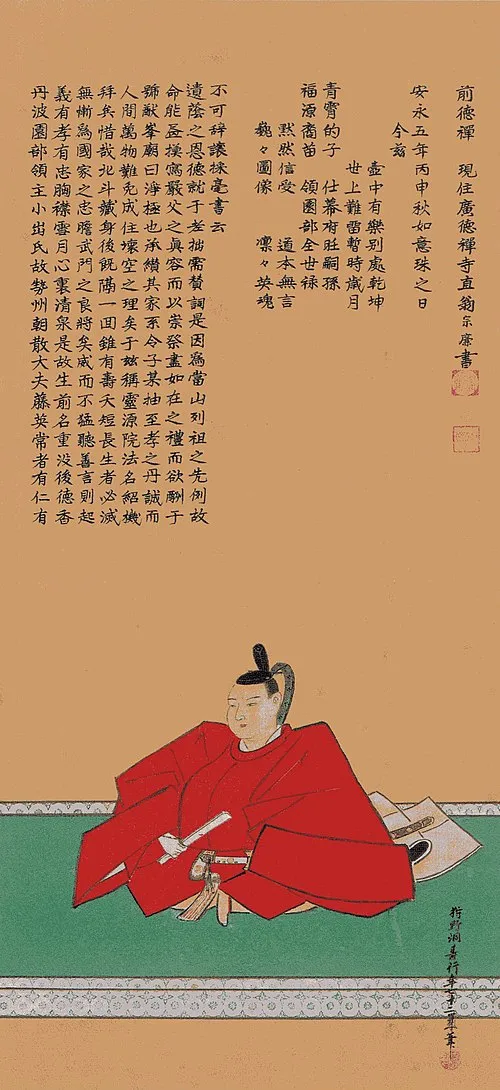 丹波園部領主小出氏故勢州朝散大夫藤英常者有仁有
義有孝有忠胸襟雪月心裏清泉是故生前名重没後德香
無慚爲國家之忠膽武門之良將矣威而不猛聽善言則起
拜矣惜哉北斗藏身後既隔一回雖有壽夭短長生者必滅
人間萬物難免成住壞空之理矣于玆稱靈源院法名紹機
號猷峯廟曰淨極也承續其家系令子某抽至孝之丹誠而
命能画摸寫嚴父之眞容而以崇祭盡如在之禮而欲酬于
遺蔭之恩德就于老拙需賛詞是因爲當山列祖之先例故
不可辞讓採毫書云
巍々圖像 凛々英魂
默然信受 道本無言
福源裔苗 領園部全世禄
青霄的子 仕幕府旺嗣孫
世上難留暫時歳月
壺中有樂別處乾坤
今玆
安永五年丙申秋如意珠之日
前德禪 現住廣德禪寺直翁宗廉書
狩野洞壽行年